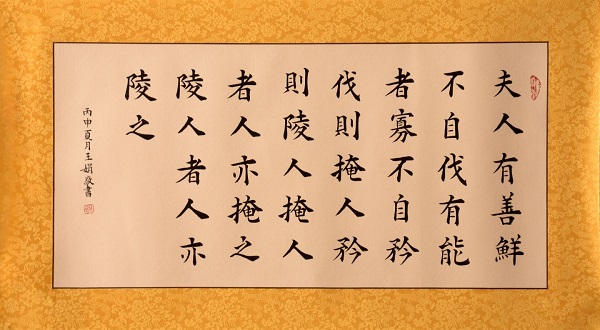 夫人有善鮮
不自伐有能
者寡不自矜
伐則掩人矜
則陵人掩人
者人亦掩之
陵人者人亦
陵之
丙申夏月王娟敬書